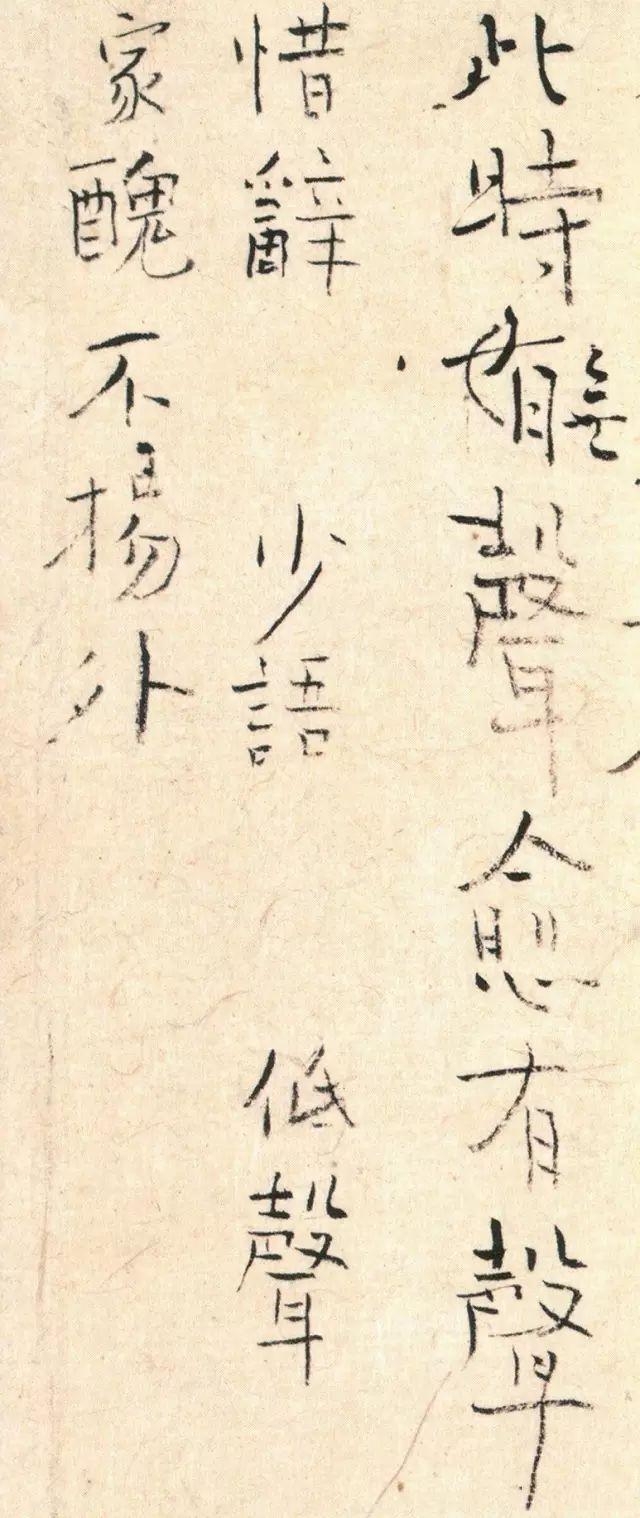 此時有無聲愈有聲
惜辭 少語 低聲
家醜不揚外